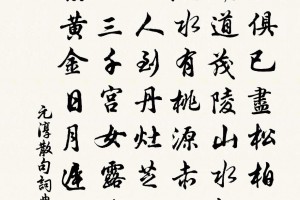 俱已盡松柏
道茂陵山水
水有桃源赤
人到丹灶芝
三千宮女露
黃金日月遲
元淳散句詞